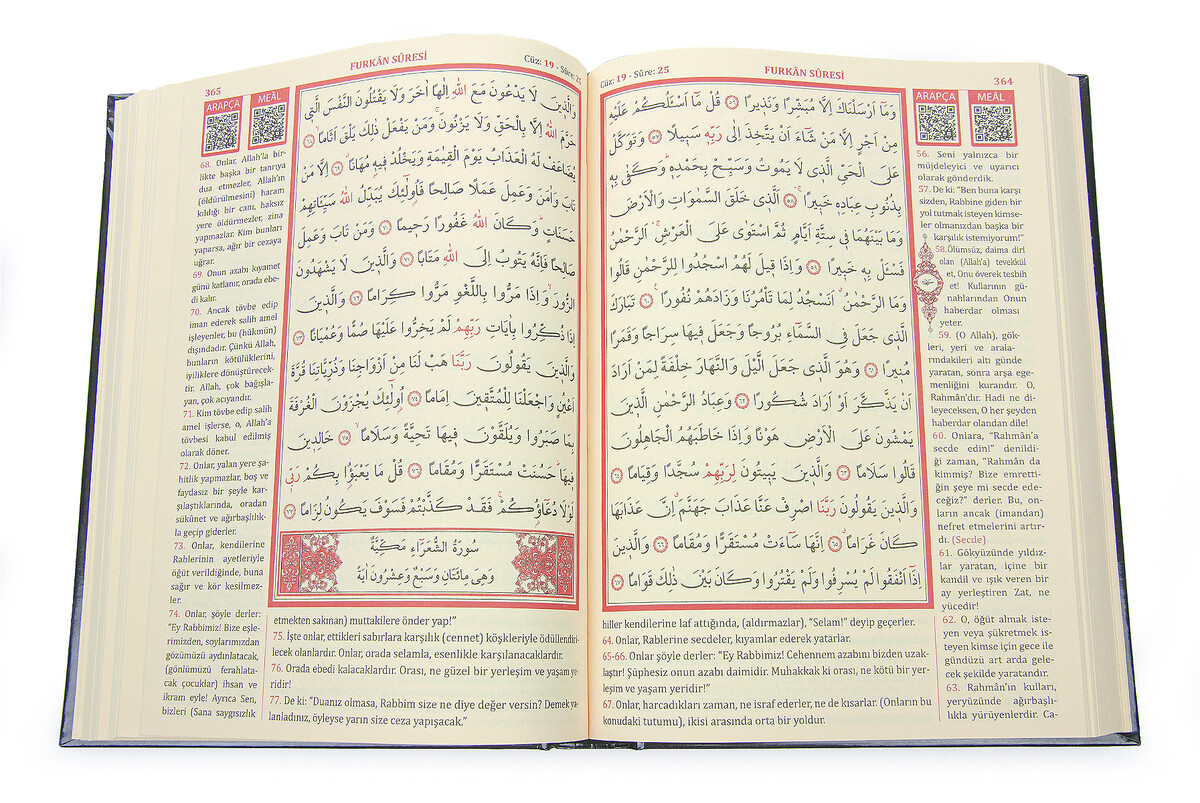 Cüz: 19 - Sûre: 25
FURKÂN SÛRESİ
364
وَمَٓا اَرْسَلْنَاكَ اِلَّا مُبَشِّرًا وَنَذ۪يرًا ﴿٥٦﴾ قُلْ مَٓا اَسْـَٔلُكُمْ عَلَيْهِ
مِنْ اَجْرٍ اِلَّا مَنْ شَٓاءَ اَنْ يَتَّخِذَ اِلٰى رَبِّه۪ سَب۪يلًا ﴿٥٧﴾ وَتَوَكَّلْ
عَلَى الْحَيِّ الَّذ۪ي لَا يَمُوتُ وَسَبِّحْ بِحَمْدِه۪ۜ وَكَفٰى بِه۪
بِذُنُوبِ عِبَادِه۪ خَب۪يرًاۚ ﴿٥٨﴾ اَلَّذ۪ي خَلَقَ السَّمٰوَاتِ وَالْاَرْضَ
وَمَا بَيْنَهُمَا ف۪ي سِتَّةِ اَيَّامٍ ثُمَّ اسْتَوٰى عَلَى الْعَرْشِ اَلرَّحْمٰنُ
فَسْـَٔلْ بِه۪ خَب۪يرًا ﴿٥٩﴾ وَاِذَا ق۪يلَ لَهُمُ اسْجُدُوا لِلرَّحْمٰنِ قَالُوا
وَمَا الرَّحْمٰنُ اَنَسْجُدُ لِمَا تَأْمُرُنَا وَزَادَهُمْ نُفُورًا ﴿٦٠﴾ تَبَارَكَ
الَّذ۪ي جَعَلَ فِي السَّمَٓاءِ بُرُوجًا وَجَعَلَ ف۪يهَا سِرَاجًا وَقَمَرًا
مُن۪يرًا ﴿٦١﴾ وَهُوَ الَّذ۪ي جَعَلَ الَّيْلَ وَالنَّهَارَ خِلْفَةً لِمَنْ اَرَادَ
اَنْ يَذَّكَّرَ اَوْ اَرَادَ شُكُورًا ﴿٦٢﴾ وَعِبَادُ الرَّحْمٰنِ الَّذ۪ينَ
يَمْشُونَ عَلَى الْاَرْضِ هَوْنًا وَاِذَا خَاطَبَهُمُ الْجَاهِلُونَ
قَالُوا سَلَامًا ﴿٦٣﴾ وَالَّذ۪ينَ يَب۪يتُونَ لِرَبِّهِمْ سُجَّدًا وَقِيَامًا ﴿٦٤﴾
وَالَّذ۪ينَ يَقُولُونَ رَبَّنَا اصْرِفْ عَنَّا عَذَابَ جَهَنَّمَۗ اِنَّ عَذَابَهَا
كَانَ غَرَامًاۗ ﴿٦٥﴾ اِنَّهَا سَٓاءَتْ مُسْتَقَرًّا وَمُقَامًا ﴿٦٦﴾ وَالَّذ۪ينَ
اِذَٓا اَنْفَقُوا لَمْ يُسْرِفُوا وَلَمْ يَقْتُرُوا وَكَانَ بَيْنَ ذٰلِكَ قَوَامًا ﴿٦٧﴾
ARAPÇA
MEÂL
56. Seni yalnızca bir
müjdeleyici ve uyarıcı
olarak gönderdik.
57. De ki: “Ben buna karşı
sizden, Rabbine giden bir
yol tutmak isteyen kimse-
ler olmanızdan başka bir
karşılık istemiyorum!”
58.Ölümsüz, daima diri
olan (Allah’a) tevekkül
et, Onu överek tesbih
et! Kullarının gü-
nahlarından Onun
haberdar olması
yeter.
59. (O Allah), gök-
leri, yeri ve arala-
rındakileri altı günde
yaratan, sonra arşa ege-
menliğini kurandır. O,
Rahmân’dır. Hadi ne di-
leyeceksen, O her şeyden
haberdar olandan dile!
60. Onlara, “Rahmân’a
secde edin!” denildi-
ği zaman, “Rahmân da
kimmiş? Bize emretti-
ğin şeye mi secde ede-
ceğiz?” derler. Bu, on-
ların ancak (imandan)
nefret etmelerini artır-
dı. (Secde)
61. Gökyüzünde yıldız-
lar yaratan, içine bir
kandil ve ışık veren bir
ay yerleştiren Zat, ne
yücedir!
62. O, öğüt almak iste-
yen veya şükretmek is-
teyen kimse için gece ile
gündüzü art arda gele-
cek şekilde yaratandır.
63. Rahmân’ın kulları,
yeryüzünde ağırbaşlı-
lıkla yürüyenlerdir. Ca-
hiller kendilerine laf attığında, (aldırmazlar), “Selam!” deyip geçerler.
64. Onlar, Rablerine secdeler, kıyamlar ederek yatarlar.
65-66. Onlar şöyle derler: “Ey Rabbimiz! Cehennem azabını bizden uzak-
laştır! Şüphesiz onun azabı daimidir. Muhakkak ki orası, ne kötü bir yer-
leşim ve yaşam yeridir!”
67. Onlar, harcadıkları zaman, ne israf ederler, ne de kısarlar. (Onların bu
konudaki tutumu), ikisi arasında orta bir yoldur.
365
FURKÂN SÛRESİ
Cüz: 19 - Sûre: 25
وَالَّذ۪ينَ لَا يَدْعُونَ مَعَ اللّٰهِ اِلٰهًا اٰخَرَ وَلَا يَقْتُلُونَ النَّفْسَ الَّت۪ي
حَرَّمَ اللّٰهُ اِلَّا بِالْحَقِّ وَلَا يَزْنُونَۚ وَمَنْ يَفْعَلْ ذٰلِكَ يَلْقَ اَثَامًاۙ ﴿٦٨﴾
يُضَاعَفْ لَهُ الْعَذَابُ يَوْمَ الْقِيٰمَةِ وَيَخْلُدْ ف۪يه۪ مُهَانًاۗ ﴿٦٩﴾ اِلَّا مَنْ
تَابَ وَاٰمَنَ وَعَمِلَ عَمَلًا صَالِحًا فَاُو۬لٰٓئِكَ يُبَدِّلُ اللّٰهُ سَيِّـَٔاتِهِمْ
حَسَنَاتٍۜ وَكَانَ اللّٰهُ غَفُورًا رَح۪يمًا ﴿٧٠﴾ وَمَنْ تَابَ وَعَمِلَ
صَالِحًا فَاِنَّهُ يَتُوبُ اِلَى اللّٰهِ مَتَابًا ﴿٧١﴾ وَالَّذ۪ينَ لَا يَشْهَدُونَ
الزُّورَۙ وَاِذَا مَرُّوا بِاللَّغْوِ مَرُّوا كِرَامًا ﴿٧٢﴾ وَالَّذ۪ينَ
اِذَا ذُكِّرُوا بِاٰيَاتِ رَبِّهِمْ لَمْ يَخِرُّوا عَلَيْهَا صُمًّا وَعُمْيَانًا ﴿٧٣﴾
وَالَّذ۪ينَ يَقُولُونَ رَبَّنَا هَبْ لَنَا مِنْ اَزْوَاجِنَا وَذُرِّيَّاتِنَا قُرَّةَ
اَعْيُنٍ وَاجْعَلْنَا لِلْمُتَّق۪ينَ اِمَامًا ﴿٧٤﴾ اُو۬لٰٓئِكَ يُجْزَوْنَ الْغُرْفَةَ
بِمَا صَبَرُوا وَيُلَقَّوْنَ ف۪يهَا تَحِيَّةً وَسَلَامًاۙ ﴿٧٥﴾ خَالِد۪ينَ
ف۪يهَاۜ حَسُنَتْ مُسْتَقَرًّا وَمُقَامًا ﴿٧٦﴾ قُلْ مَا يَعْبَؤُ۬ا بِكُمْ رَبّ۪ي
لَوْلَا دُعَٓاؤُ۬كُمْۚ فَقَدْ كَذَّبْتُمْ فَسَوْفَ يَكُونُ لِزَامًا ﴿٧٧﴾
سُورَةُ الشُّعَرَٓاءِ مَكِّيَّةٌ
وَهِيَ مِائَتَانِ وَسَبْعٌ وَعِشْرُونَ اٰيَةً
ARAPÇA
MEÂL
68. Onlar, Allah’la bir-
likte başka bir tanrıya
dua etmezler, Allah’ın
(öldürülmesini) haram
kıldığı bir canı, haksız
yere öldürmezler, zina
yapmazlar. Kim bunları
yaparsa, ağır bir cezaya
uğrar.
69. Onun azabı kıyamet
günü katlanır, orada ebe-
di kalır.
70. Ancak tövbe edip
iman ederek salih amel
işleyenler, bu (hükmün)
dışındadır. Çünkü Allah,
bunların kötülüklerini,
iyiliklere dönüştürecek-
tir. Allah, çok bağışla-
yan, çok acıyandır.
71. Kim tövbe edip salih
amel işlerse, o, Allah’a
tövbesi kabul edilmiş
olarak döner.
72. Onlar, yalan yere şa-
hitlik yapmazlar, boş ve
faydasız bir şeyle kar-
şılaştıklarında, oradan
sükûnet ve ağırbaşlılık-
la geçip giderler.
73. Onlar, kendilerine
Rablerinin ayetleriyle
öğüt verildiğinde, buna
sağır ve kör kesilmez-
ler.
74. Onlar, şöyle derler:
“Ey Rabbimiz! Bize eşle-
rimizden, soylarımızdan
gözümüzü aydınlatacak,
(gönlümüzü ferahlata-
cak çocuklar) ihsan ve
ikram eyle! Ayrıca Sen,
bizleri (Sana saygısızlık
etmekten sakınan) muttakilere önder yap!”
75. İşte onlar, ettikleri sabırlara karşılık (cennet) köşkleriyle ödüllendiri-
lecek olanlardır. Onlar, orada selamla, esenlikle karşılanacaklardır.
76. Orada ebedi kalacaklardır. Orası, ne güzel bir yerleşim ve yaşam ye-
ridir!
77. De ki: “Duanız olmasa, Rabbim size ne diye değer versin? Demek ya-
lanladınız, öyleyse yarın size ceza yapışacak.”